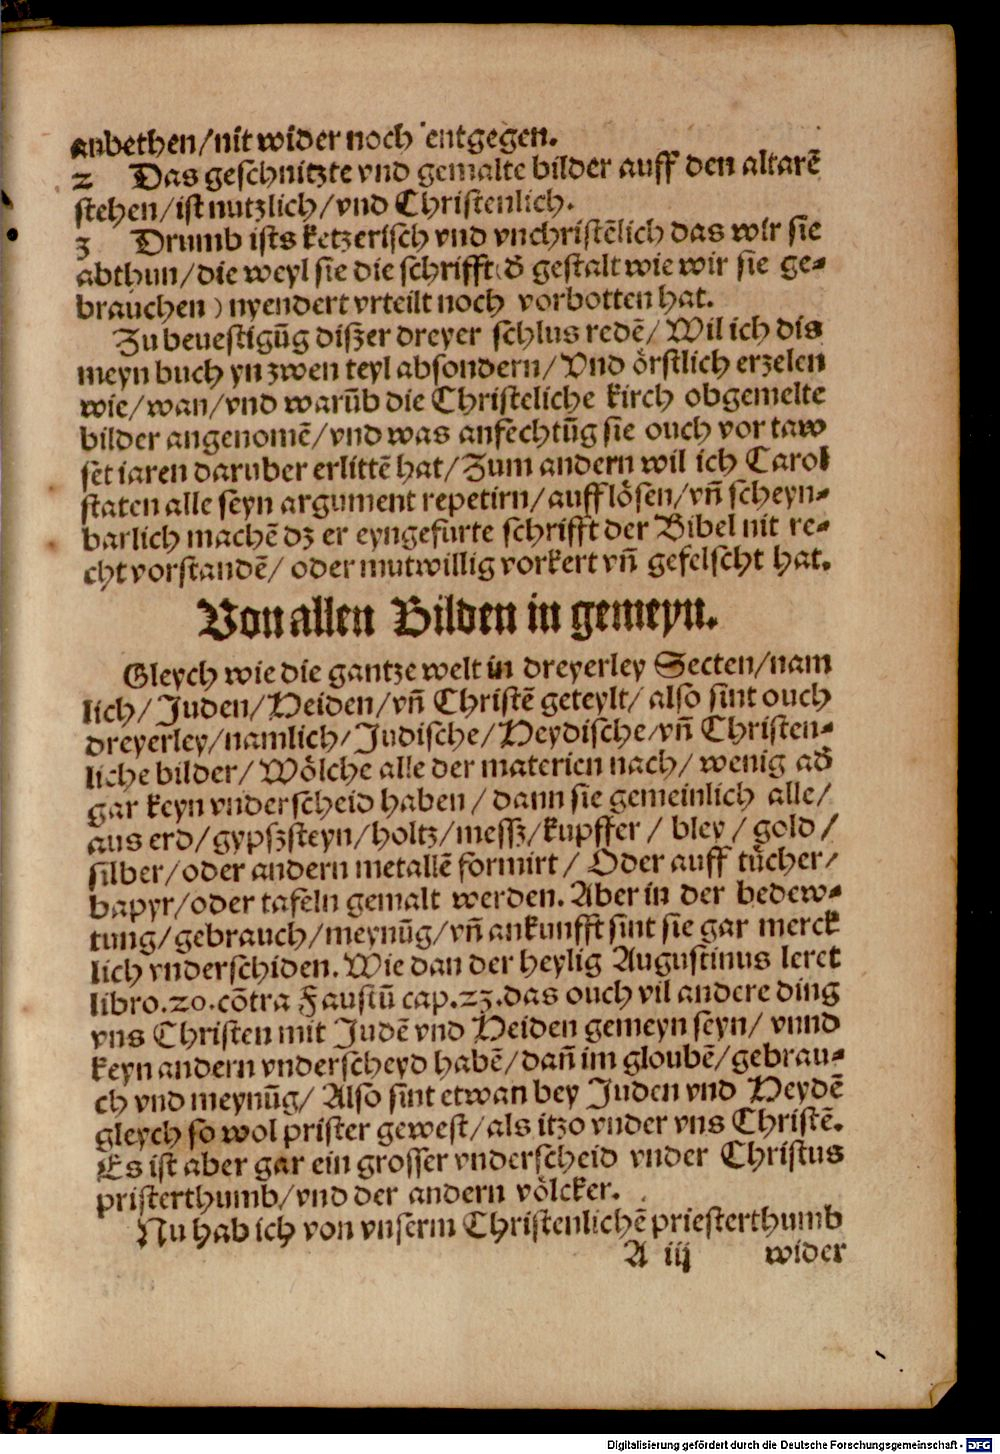 anbethen/nit wider noch entgegen.
2 Das geschnitzte vnd gemalte bilder auff den altarē
stehen/ist nutzlich/vnd Christenlich.
3 Drumb ists ketzerisch vnd vnchristēlich das wir sie
abthun/die weyl sie die schrifft(đ gestalt wie wir sie ge-
brauchen) nyendert vrteilt noch vorbotten hat.
Zu beuestigūg diszer dreyer schlus redē/ Wil ich dis
meyn buch yn zwen teyl absondern/ Vnd örstlich erzelen
wie/wan/vnd warūb die Christeliche kirch obgemelte
bilder angenomē/vnd was anfechtūg sie ouch vor taw
sēt iaren daruber erlittē hat/ Zum andern wil ich Carol
staten alle seyn argument repetirn/aufflösen/vn̄ scheyn-
barlich machē dz er eyngefurte schrifft der Bibel nit re-
cht vorstandē/ oder mutwillig vorkert vn̄ gefelscht hat.
Von allen Bilden in gemeyn.
Gleych wie die gantze welt in dreyerley Secten/nam
lich/ Juden/Heiden/vn̄ Christē geteylt/ also sint ouch
dreyerley/namlich/Judische/Heydische/vn̄ Christen-
liche bilder/ Wölche alle der materien nach/ wenig ađ
gar keyn vnderscheid haben/ dann sie gemeinlich alle/
aus erd/gypszsteyn/holtz/messz/kupffer/ bley/ gold/
silber/oder andern metallē formirt/ Oder auff tücher/
bapyr/oder tafeln gemalt werden. Aber in der bedew-
tung/gebrauch/meynūg/vn̄ ankunfft sint sie gar merck
lich vnderschiden. Wie dan der heylig Augustinus leret
libro.20.cōtra Faustū cap.23.das ouch vil andere ding
vns Christen mit Judē vnd Heiden gemeyn seyn/ vnnd
keyn andern vnderscheyd habē/dan̄ im gloubē/gebrau-
ch vnd meynūg/ Also sint etwan bey Juden vnd Heydē
gleych so wol prister gewest/als itzo vnder vns Christē.
Es ist aber gar ein grosser vnderscheid vnder Christus
pristerthumb/vnd der andern völcker.
Nu hab ich von vnserm Christenlichē priesterthumb
A iij wider
Digitalisierung gefördert durch die Deutsche Forschungsgemeinschaft - DFG